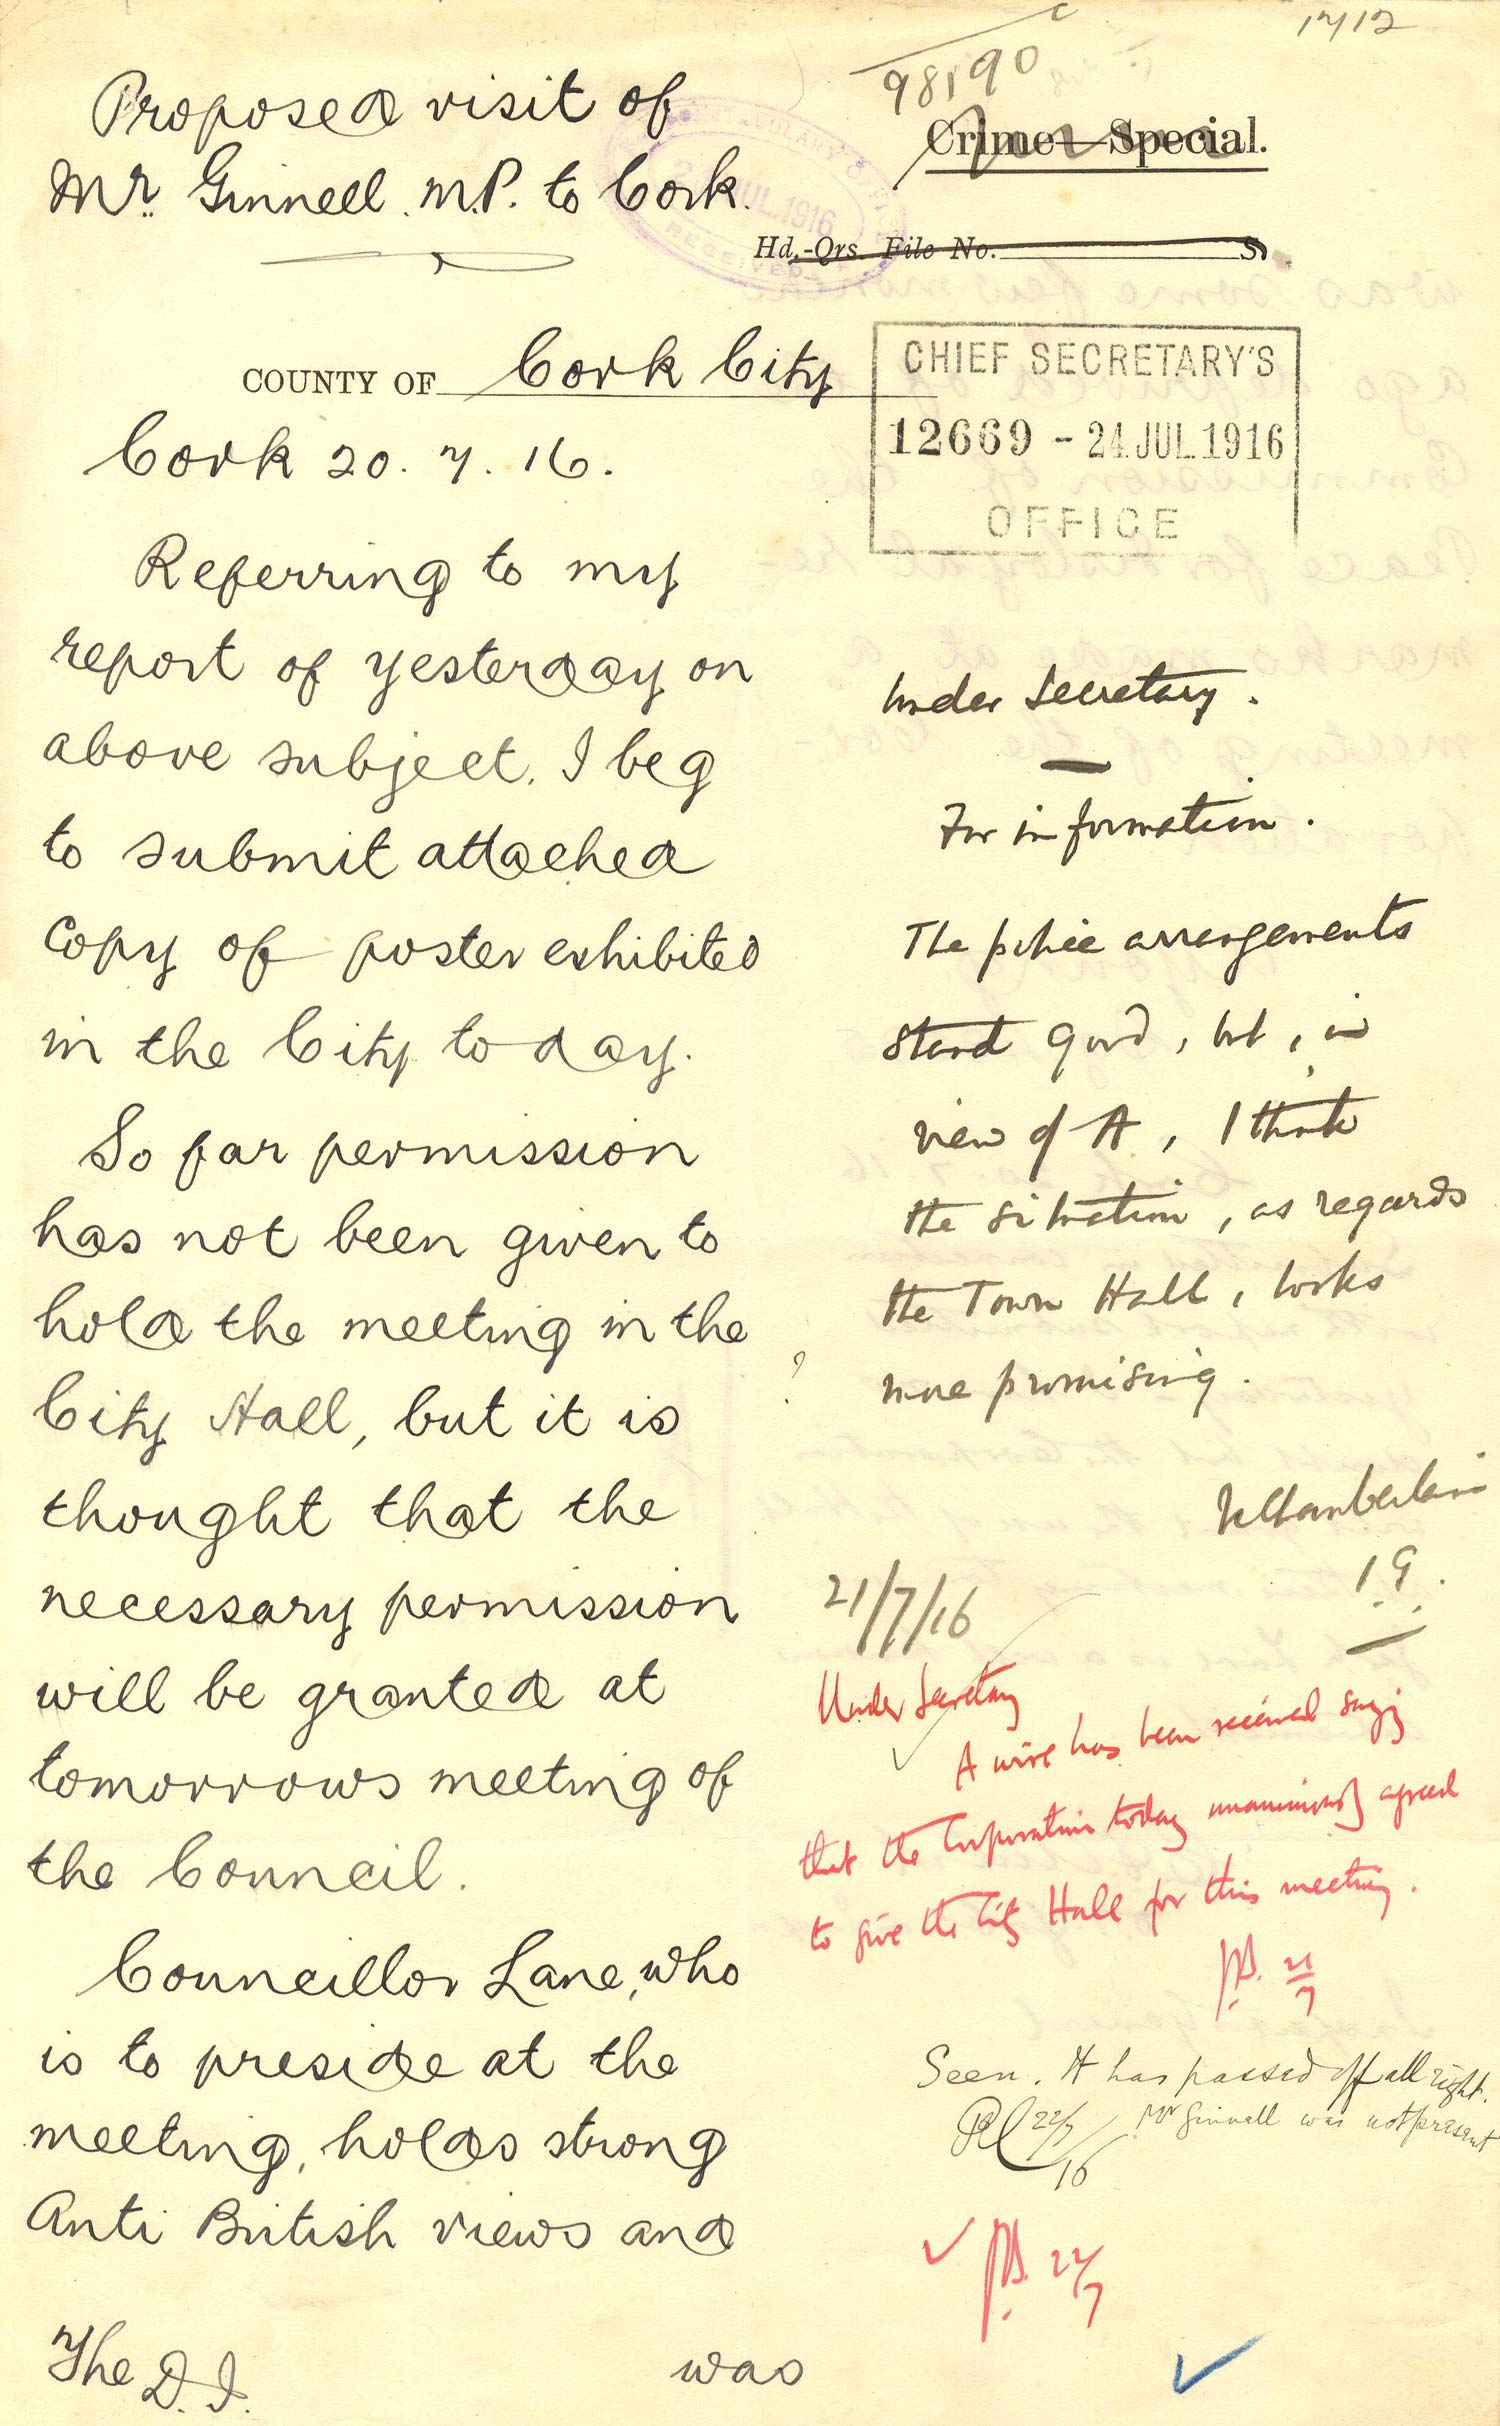 1712
98190
Proposed visit of
Mr. Ginnell. M.P. to Cork.
Crime Special.
RECEIVED
JUL 1916
Hd.-Qrs. File No. S.
COUNTY OF Cork City
CHIEF SECRETARY'S
12669 - 24 JUL. 1916
OFFICE
Cork 20. 7. 16.
Referring to my
report of yesterday on
above subject. I beg
to submit attached
Copy of poster exhibited
in the City to day.
So far permission
has not been given to
hold the meeting in the
City Hall, but it is
thought that the
necessary permission
will be granted at
tomorrows meeting of
the Council.
Councillor Lane, who
is to preside at the
meeting, holds strong
Anti British views and
The D.I.
was
Under Secretary.
For information.
The police arrangements
stand good, but, in
view of A, I think
the situation, as regards
the Town Hall, looks
more promising.
?
NChamberlain
I.G.
21/7/16
Under Secretary
A wire has been received saying
that the Corporation today unanimously agreed
to give the City Hall for this meeting.
21/7
Seen. It has passed off all right.
22/7/16 Mr Ginnell was not present
22/7